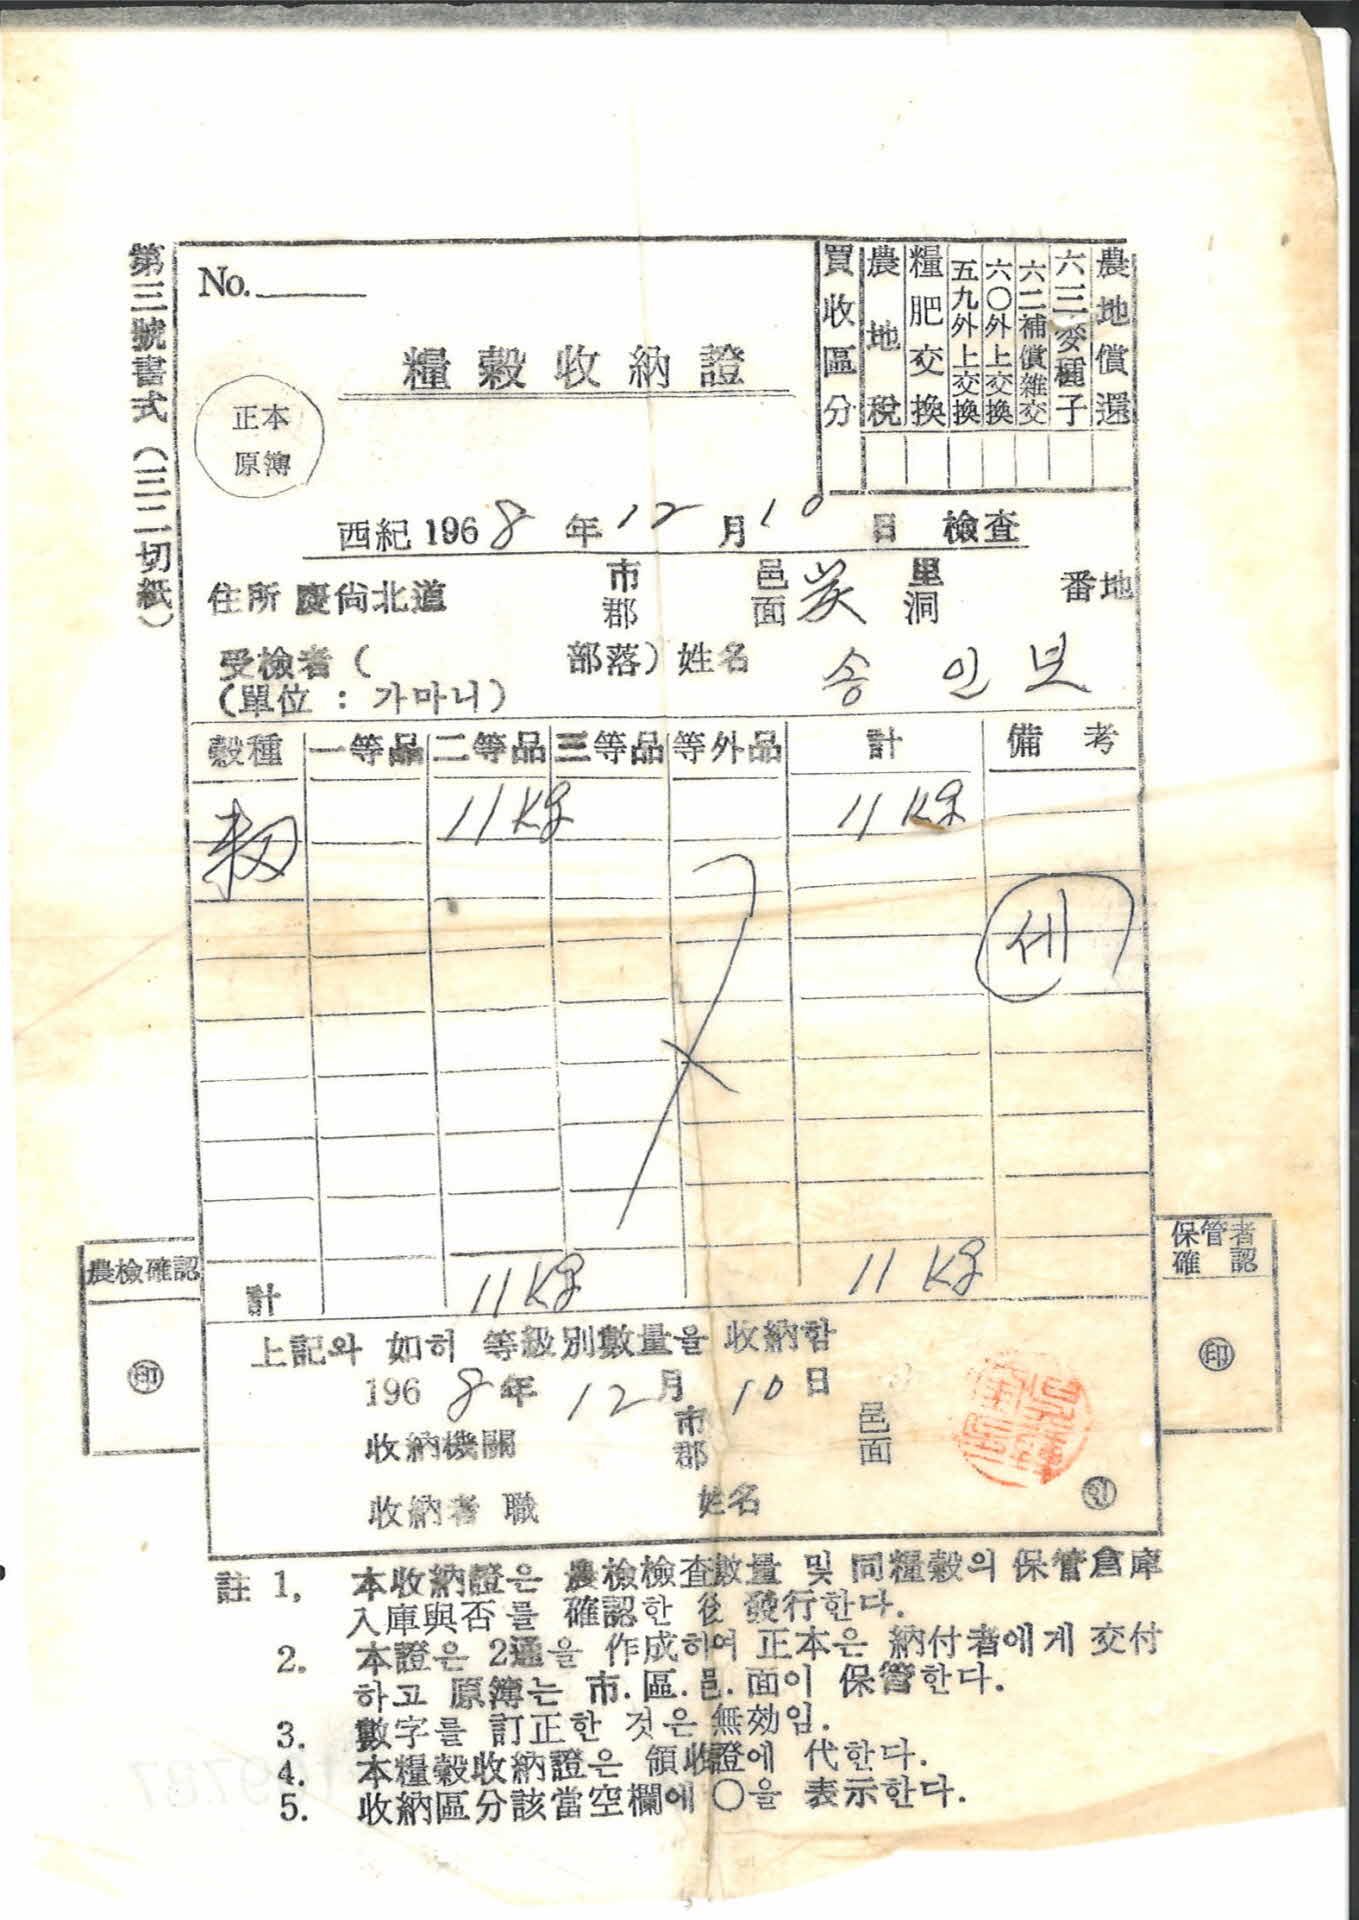 第三號書式（三二切紙）
No.
糧穀收納證
正本
原簿
買收區分
農地稅
糧肥交換
五九外上交換
六〇外上交換
六二補償雜交
六三麥種子
農地償還
西紀 1968年 12月 10日 檢査
住所 慶尙北道 市郡 邑面 炭 里洞 番地
受檢者 ( 部落) 姓名 송인보
(單位 : 가마니)
穀種 一等品 二等品 三等品 等外品 計 備考
11 Kg 11 Kg
세
計 11 Kg 11 Kg
農檢確認
印
保管者
確認
印
上記와 如히 等級別數量을 收納함
1968年 12月 10日
收納機關 市郡 邑面
收納者 職 姓名 인
註 1. 本收納證은 農檢檢査數量 및 同糧穀의 保管倉庫
入庫與否를 確認한 後 發行한다.
2. 本證은 2通을 作成하여 正本은 納付者에게 交付
하고 原簿는 市.區.邑.面이 保管한다.
3. 數字를 訂正한 것은 無効임.
4. 本糧穀收納證은 領收證에 代한다.
5. 收納區分該當空欄에 ○을 表示한다.